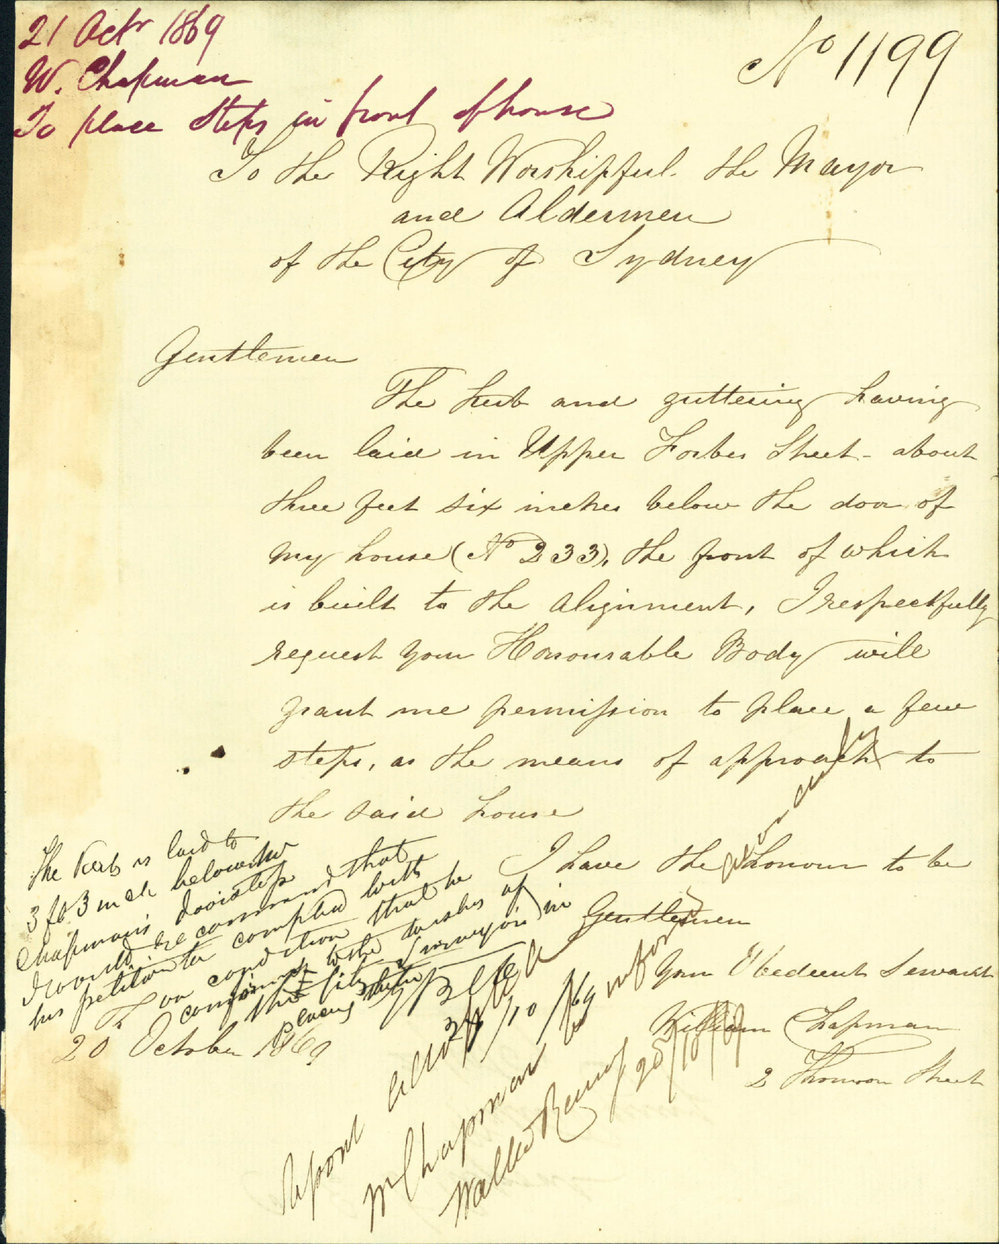 21 Octr 1869
W. Chapman
To place Steps in front of house
No 1199
To the Right Worshipful the Mayor
and Aldermen
of the City of Sydney
Gentlemen
The kerb and guttering having
been laid in Upper Forbes Street - about
three feet six inches below the door of
my house (No 233), the front of which
is built to the alignment, I respectfully
request your Honourable Body will
grant me permission to place a few
steps, as the means of approach to
the said house
I have the honour to be
Gentlemen
Your Obedient Servant
William Chapman
2 Thomson Street
20 October 1869
The Kerb is laid to
3 ft 3 inch below Mr
Chapman's doorstep
I would recommend that
his petition be complied with
on condition that he
conforms to the wishes of
the City Surveyor in
placing them
Report
/10/69
W Chapman informed
20/10/69